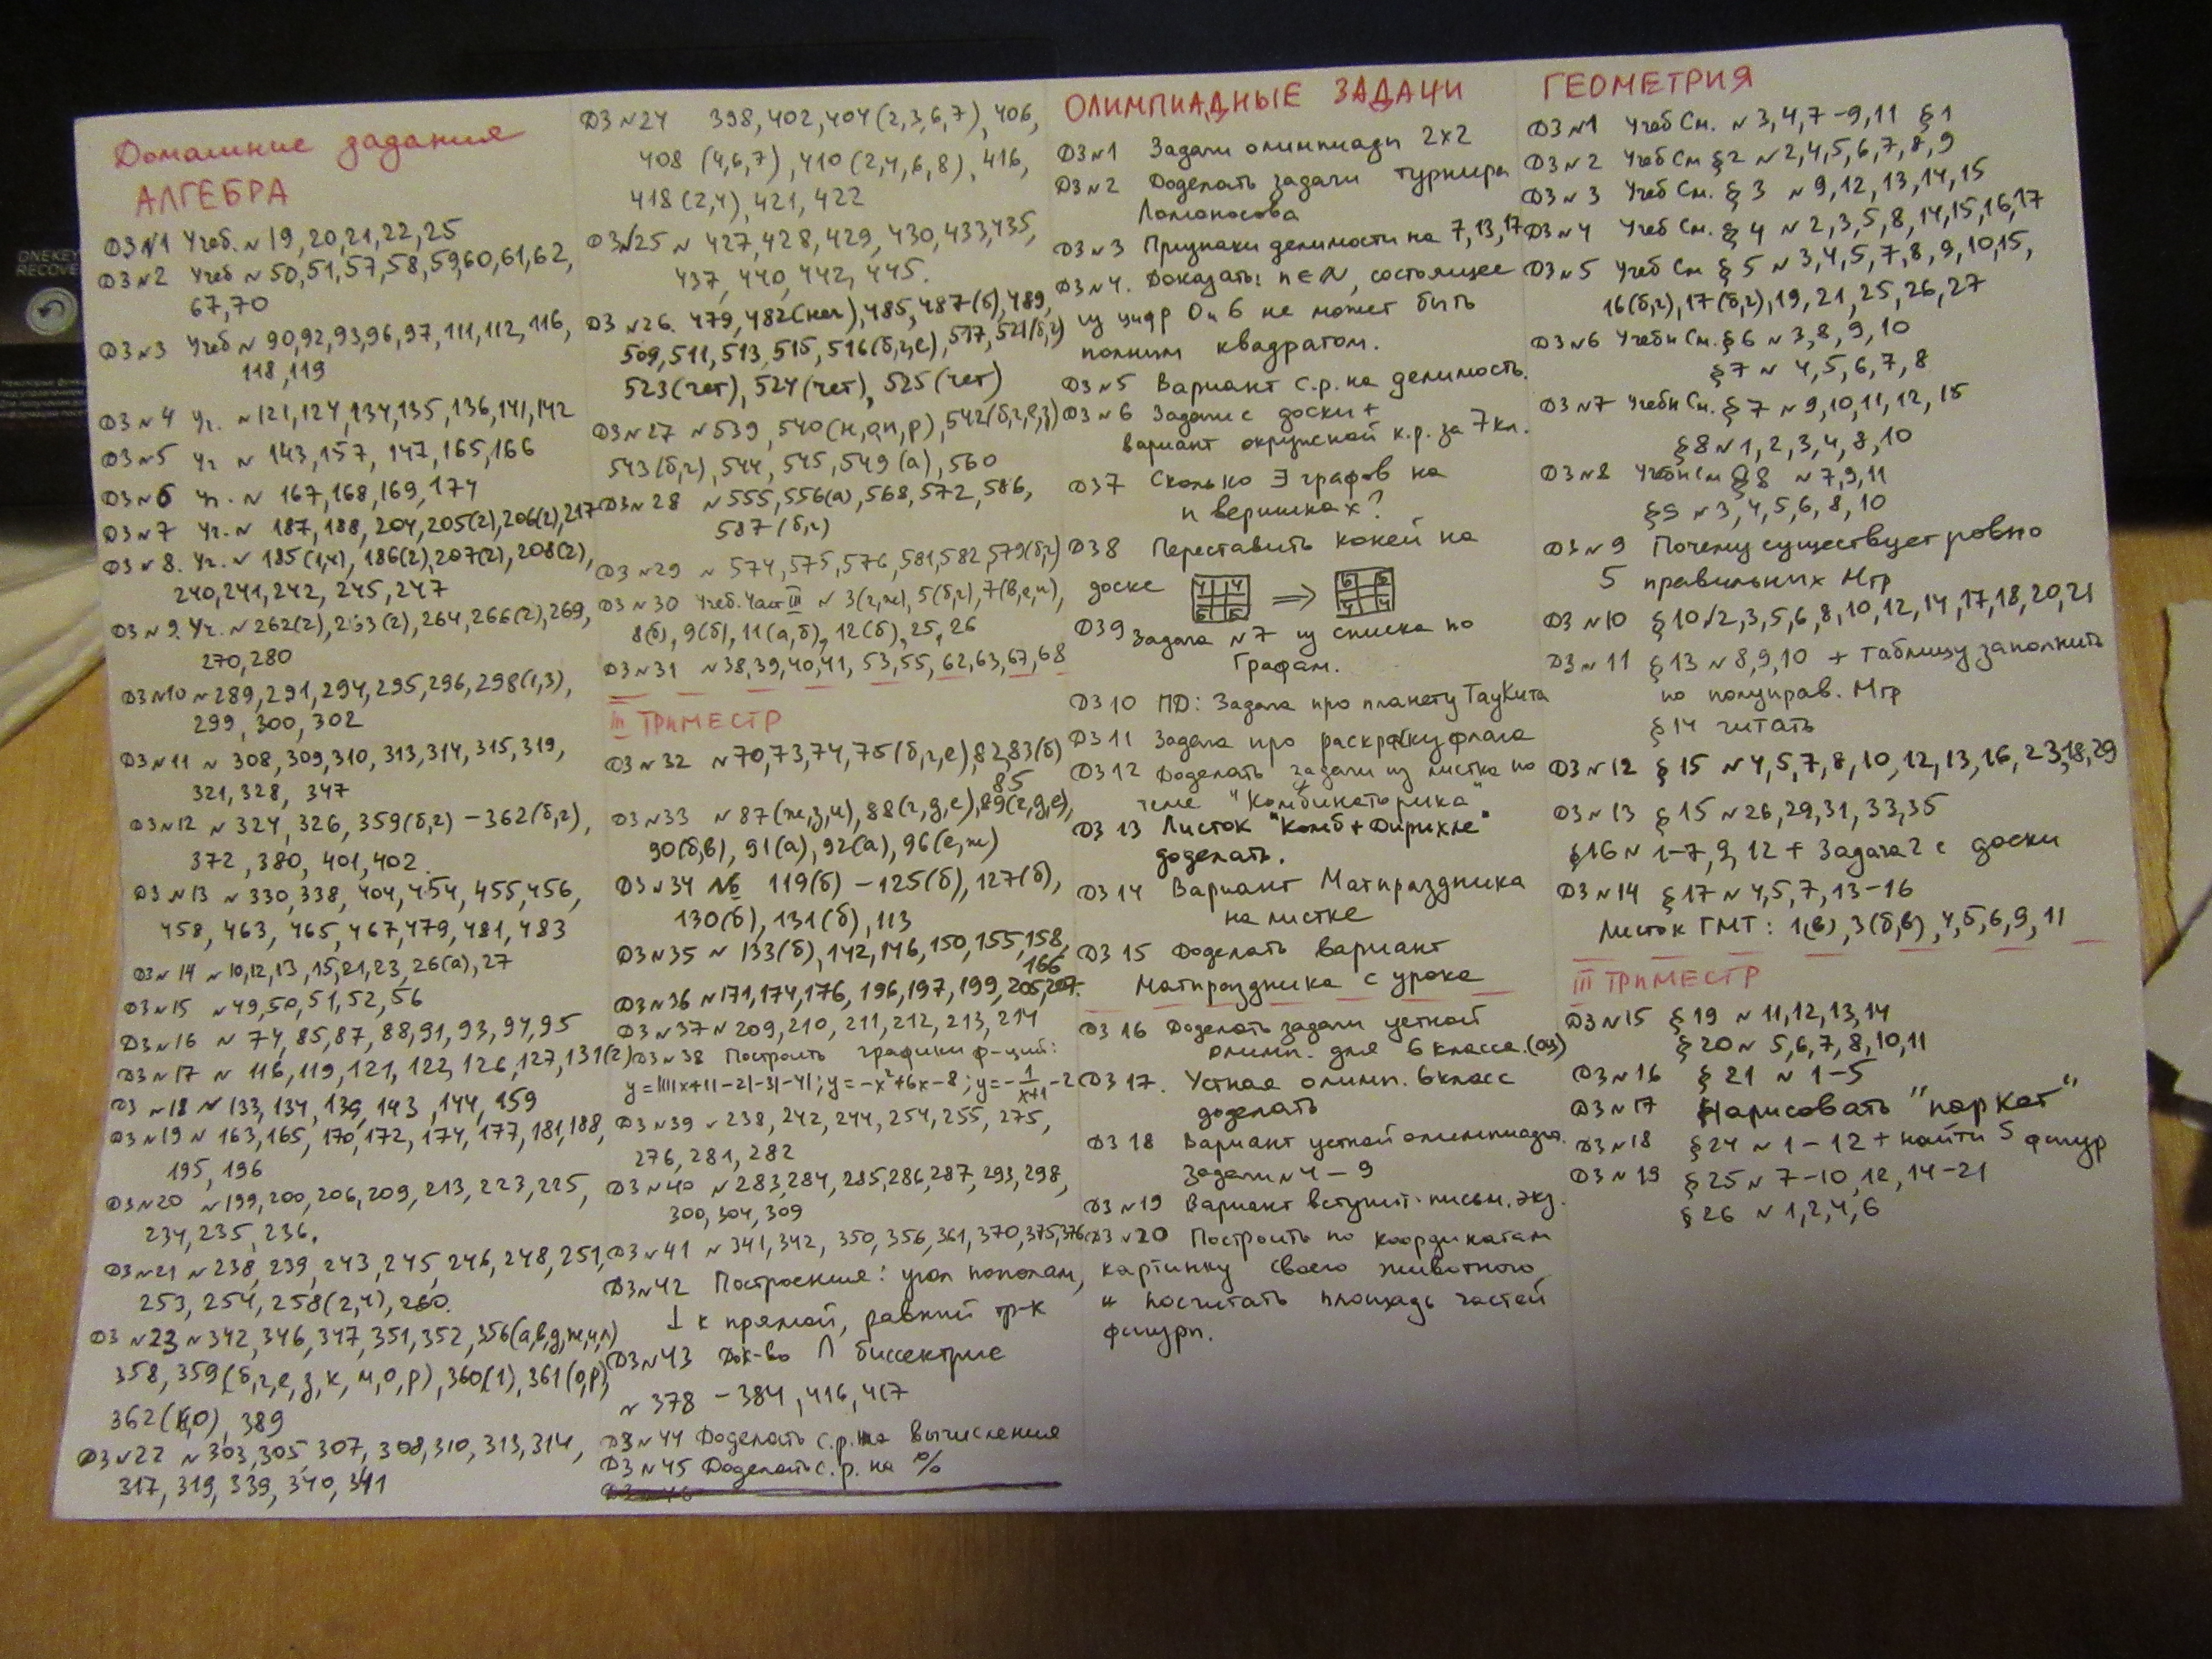 Домашние задания
АЛГЕБРА
ДЗ №1 Учеб. № 19, 20, 21, 22, 25
ДЗ №2 Учеб № 50, 51, 57, 58, 59, 60, 61, 62,
67, 70
ДЗ №3 Учеб № 90, 92, 93, 96, 97, 111, 112, 116,
118, 119
ДЗ №4 Уч. № 121, 124, 134, 135, 136, 141, 142
ДЗ №5 Уч № 143, 157, 147, 165, 166
ДЗ №6 Уч. № 167, 168, 169, 174
ДЗ №7 Уч. № 187, 188, 204, 205(2), 206(2), 217
ДЗ №8. Уч. № 185(1,4), 186(2), 207(2), 208(2),
240, 241, 242, 245, 247
ДЗ №9. Уч. № 262(2), 263(2), 264, 266(2), 269,
270, 280
ДЗ №10 № 289, 291, 294, 295, 296, 298(1,3),
299, 300, 302
ДЗ №11 № 308, 309, 310, 313, 314, 315, 319,
321, 328, 347
ДЗ №12 № 324, 326, 359(б,г) – 362(б,г),
372, 380, 401, 402.
ДЗ №13 № 330, 338, 404, 454, 455, 456,
458, 463, 465, 467, 479, 481, 483
ДЗ №14 № 10, 12, 13, 15, 21, 23, 26(а), 27
ДЗ №15 № 49, 50, 51, 52, 56
ДЗ №16 № 74, 85, 87, 88, 91, 93, 94, 95
ДЗ №17 № 116, 119, 121, 122, 126, 127, 131(2)
ДЗ №18 № 133, 134, 139, 143, 144, 159
ДЗ №19 № 163, 165, 170, 172, 174, 177, 181, 188,
195, 196
ДЗ №20 № 199, 200, 206, 209, 213, 223, 225,
234, 235, 236.
ДЗ №21 № 238, 239, 243, 245, 246, 248, 251,
253, 254, 258(2,4), 260.
ДЗ №23 № 342, 346, 347, 351, 352, 356(а,в,д,ж,и,л)
358, 359(б,г,е,з,к,м,о,р), 360(1), 361(о,р),
362( ,о), 389
ДЗ №22 № 303, 305, 307, 308, 310, 313, 314,
317, 319, 339, 340, 341
ДЗ №24 398, 402, 404(2,3,6,7), 406,
408 (4,6,7), 410(2,4,6,8), 416,
418(2,4), 421, 422
ДЗ №25 № 427, 428, 429, 430, 433, 435,
437, 440, 442, 445.
ДЗ №26. 479, 482(неч), 485, 487(б), 489,
509, 511, 513, 515, 516(б,г,е), 517, 521(б,г)
523(чет), 524(чет), 525(чет)
ДЗ №27 № 539, 540(н,о,п,р), 542(б,г,е,з)
543(б,г), 544, 545, 549(а), 560
ДЗ №28 № 555, 556(а), 568, 572, 586,
587(б,г)
ДЗ №29 № 574, 575, 576, 581, 582, 579(б,г)
ДЗ №30 Учеб. Част III № 3(г,ж), 5(б,г), 7(в,е,и),
8(б), 9(б), 11(а,б), 12(б), 25, 26
ДЗ №31 № 38, 39, 40, 41, 53, 55, 62, 63, 67, 68
III ТРИМЕСТР
ДЗ №32 № 70, 73, 74, 75(б,г,е), 82, 83(б)
85
ДЗ №33 № 87(ж,з,и), 88(г,д,е), 89(г,д,е),
90(б,в), 91(а), 92(а), 96(е,ж)
ДЗ №34 № 119(б) – 125(б), 127(б),
130(б), 131(б), 113
ДЗ №35 № 133(б), 142, 146, 150, 155, 158,
166
ДЗ №36 № 171, 174, 176, 196, 197, 199, 205, 207.
ДЗ №37 № 209, 210, 211, 212, 213, 214
ДЗ №38 Построить графики ф-ций:
y=||||x+1|-2|-3|-4|; y=-x²+6x-8; y=-1/(x+1)-2
ДЗ №39 № 238, 242, 244, 254, 255, 275,
276, 281, 282
ДЗ №40 № 283, 284, 285, 286, 287, 293, 298,
300, 304, 309
ДЗ №41 № 341, 342, 350, 356, 361, 370, 375, 376
ДЗ №42 Построение: угол пополам,
⊥ к прямой, равный тр-к
ДЗ №43 Док-во ∩ биссектрис
№ 378 – 384, 416, 417
ДЗ №44 Доделать с.р. на вычисления
ДЗ №45 Доделать с.р. на %
ОЛИМПИАДНЫЕ ЗАДАЧИ
ДЗ №1 Задачи олимпиады 2x2
ДЗ №2 Доделать задачи турнира
Ломоносова
ДЗ №3 Признаки делимости на 7, 13, 17
ДЗ №4. Доказать: n∈N, состоящее
из цифр 0 и 6 не может быть
полным квадратом.
ДЗ №5 Вариант с.р. на делимость.
ДЗ №6 Задачи с доски +
вариант окружной к.р. за 7 кл.
ДЗ 7 Сколько ∃ графов на
n вершинах?
ДЗ 8 Переставить коней на
доске 4 4 6 6 ⇒ 6 6 4 4
ДЗ 9 Задача №7 из списка по
Графам.
ДЗ 10 ПД: Задача про планету ТауКита
ДЗ 11 Задача про раскраску флага
ДЗ 12 Доделать задачи из листка по
теме "Комбинаторика"
ДЗ 13 Листок "Комб+Дирихле"
доделать.
ДЗ 14 Вариант Матпраздника
на листке
ДЗ 15 Доделать вариант
Матпраздника с урока
ДЗ 16 Доделать задачи устной
олимп. для 6 класса. (оз)
ДЗ 17. Устная олимп. 6 класс
доделать
ДЗ 18 Вариант устной олимпиады.
Задачи №4 – 9
ДЗ №19 Вариант вступит. письм. экз.
ДЗ №20 Построить по координатам
картинку своего животного
и посчитать площадь частей
фигуры.
ГЕОМЕТРИЯ
ДЗ №1 Учеб См. № 3, 4, 7–9, 11 §1
ДЗ №2 Учеб См §2 № 2, 4, 5, 6, 7, 8, 9
ДЗ №3 Учеб См. §3 № 9, 12, 13, 14, 15
ДЗ №4 Учеб См. §4 № 2, 3, 5, 8, 14, 15, 16, 17
ДЗ №5 Учеб См §5 № 3, 4, 5, 7, 8, 9, 10, 15,
16(б,г), 17(б,г), 19, 21, 25, 26, 27
ДЗ №6 Учебн См. §6 № 3, 8, 9, 10
§7 № 4, 5, 6, 7, 8
ДЗ №7 Учебн См. §7 № 9, 10, 11, 12, 15
§8 № 1, 2, 3, 4, 8, 10
ДЗ №8 Учебн См §8 № 7, 9, 11
§9 № 3, 4, 5, 6, 8, 10
ДЗ №9 Почему существует ровно
5 правильных Мгр
ДЗ №10 §10 № 2, 3, 5, 6, 8, 10, 12, 14, 17, 18, 20, 21
ДЗ №11 §13 № 8, 9, 10 + таблицу заполнить
по полуправ. Мгр
§14 читать
ДЗ №12 §15 № 4, 5, 7, 8, 10, 12, 13, 16, 23, 18, 29
ДЗ №13 §15 № 26, 29, 31, 33, 35
§16 № 1-7, 9, 12 + Задача 2 с доски
ДЗ №14 §17 № 4, 5, 7, 13-16
Листок ГМТ: 1(в), 3(б,в), 4, 5, 6, 9, 11
III ТРИМЕСТР
ДЗ №15 §19 № 11, 12, 13, 14
§20 № 5, 6, 7, 8, 10, 11
ДЗ №16 §21 № 1–5
ДЗ №17 Нарисовать "паркет"
ДЗ №18 §24 № 1–12 + найти S фигур
ДЗ №19 §25 № 7-10, 12, 14-21
§26 № 1, 2, 4, 6
ONEKEY
RECOVE